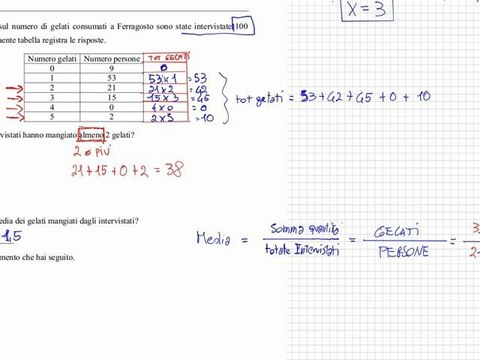 X = 3
sul numero di gelati consumati a Ferragosto sono state intervistate 100
uente tabella registra le risposte.
Numero gelati Numero persone TOT GELATI
0 9 0
1 53 53 x 1 = 53
2 21 21 x 2 = 42
3 15 15 x 3 = 45
4 0 4 x 0 = 0
5 2 2 x 5 = 10
tot gelati = 53 + 42 + 45 + 0 + 10
vistati hanno mangiato almeno 2 gelati?
2 o più
21 + 15 + 0 + 2 = 38
edia dei gelati mangiati dagli intervistati?
1,5
Media = Somma quantità / totale Intervistati = GELATI / PERSONE =
mento che hai seguito.